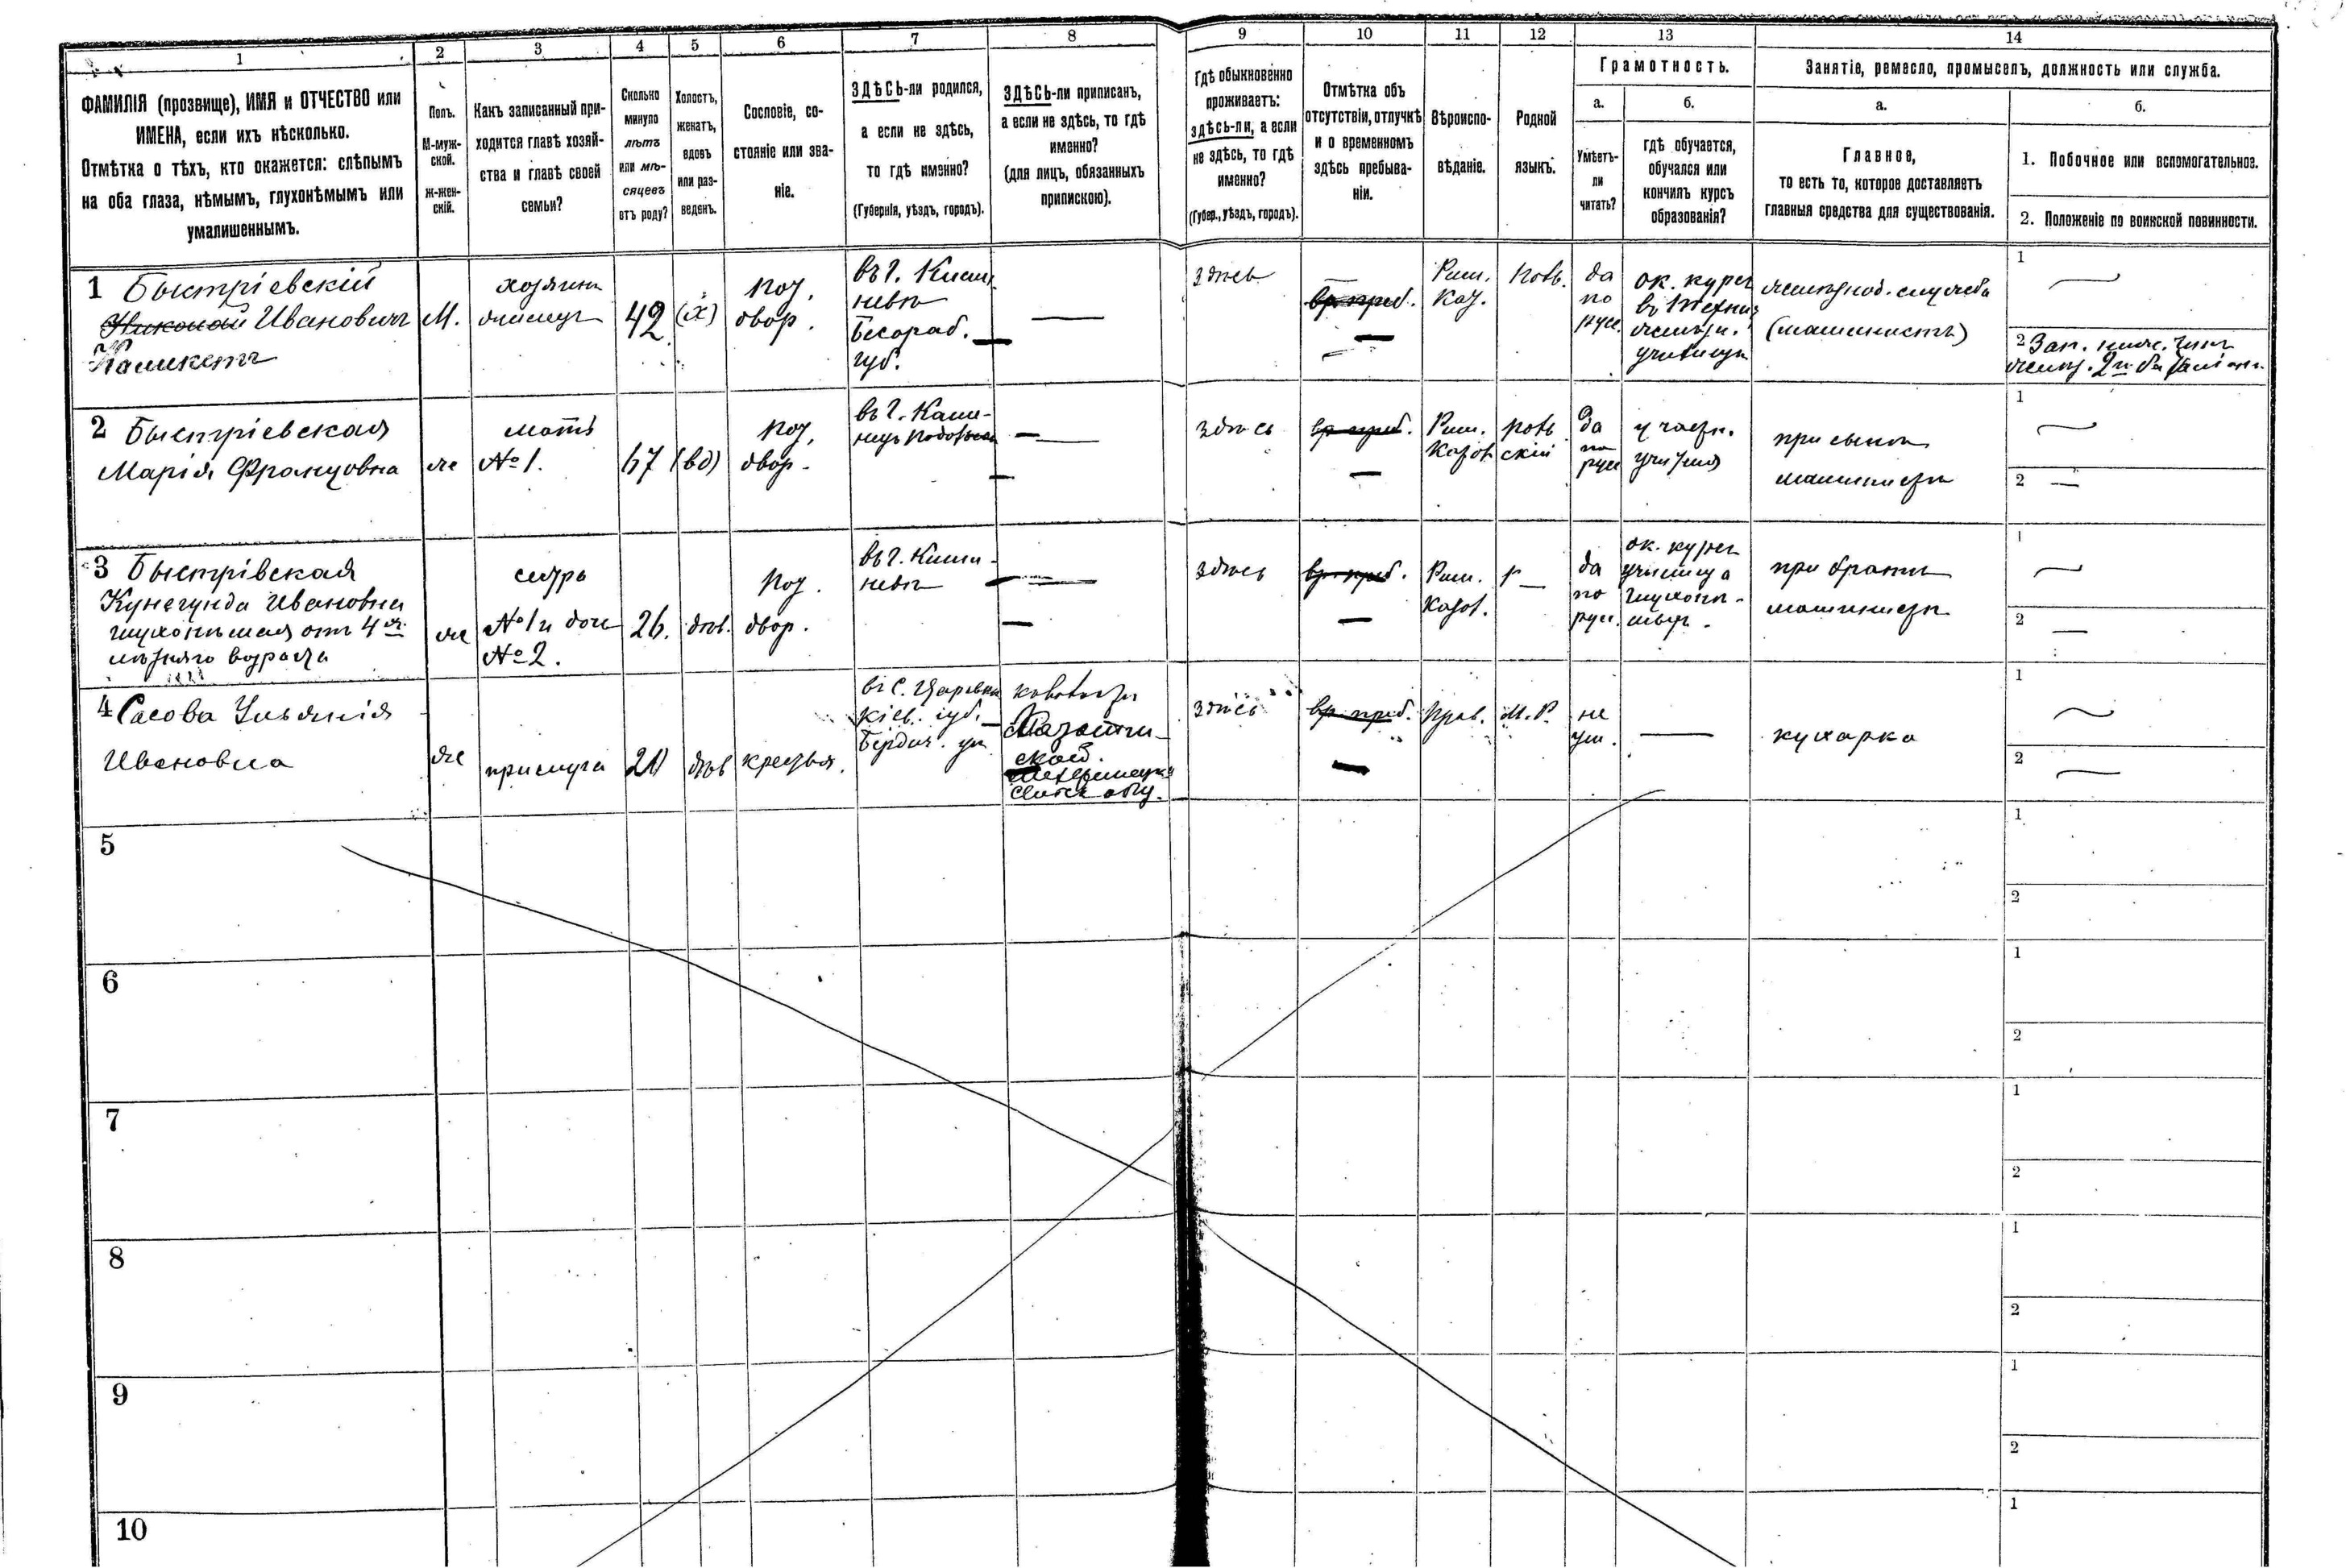 1
2
3
4
5
6
7
8
9
10
11
12
13
14
ФАМИЛІЯ (прозвище), ИМЯ и ОТЧЕСТВО или
ИМЕНА, если ихъ нѣсколько.
Отмѣтка о тѣхъ, кто окажется: слѣпымъ
на оба глаза, нѣмымъ, глухонѣмымъ или
умалишеннымъ.
Полъ.
М-муж-
ской.
Ж-жен-
скій.
Какъ записанный при-
ходится главѣ хозяй-
ства и главѣ своей
семьи?
Сколько
минуло
лѣтъ
или мѣ-
сяцевъ
отъ роду?
Холостъ,
женатъ,
вдовъ
или раз-
веденъ.
Сословіе, со-
стояніе или зва-
ніе.
ЗДѢСЬ-ли родился,
а если не здѣсь,
то гдѣ именно?
(Губернія, уѣздъ, городъ).
ЗДѢСЬ-ли приписан,
а если не здѣсь, то гдѣ
именно?
(для лицъ, обязанныхъ
припискою).
Гдѣ обыкновенно
проживаетъ:
здѣсь-ли, а если
не здѣсь, то гдѣ
именно?
(Губер., уѣздъ, городъ).
Отмѣтка объ
отсутствіи, отлучкѣ
и о временномъ
здѣсь пребыва-
ніи.
Вѣроиспо-
вѣданіе.
Родной
языкъ.
Грамотность.
а.
Умѣетъ-
ли
читать?
б.
гдѣ обучается,
обучался или
кончилъ курсъ
образованія?
Занятіе, ремесло, промыселъ, должность или служба.
а.
Главное,
то есть то, которое доставляетъ
главныя средства для существованія.
б.
1. Побочное или вспомогательное.
2. Положеніе по воинской повинности.
1 Быстріевскій
Ивановичъ
М.
хозяинъ
42
(х)
пот.
двор.
въ г. Киши
невѣ
Бесараб.
губ.
здѣсь
вр. преб.
Рим.
Кат.
Поль.
да
по
русс.
ок. курсъ
училищ
желѣзнод. служба
(машинистъ)
1
2 Зап. нижн. чинъ
2 Быстріевская
Марія Францовна
ж
мать
№ 1.
67
(вд)
пот.
двор.
въ г. Каме-
нецъ Подольск
здѣсь
вр. преб.
Рим.
Катол.
поль
скій
да
по
русс
при сынѣ
машинистѣ
1
2
3 Быстрівская
Кунегунда Ивановна
глухонѣмая отъ 4хъ
лѣтняго возраста
ж
сестра
№ 1 и дочь
№ 2.
26.
дѣв.
пот.
двор.
въ г. Киши-
невѣ
здѣсь
вр. преб.
Рим.
Катол.
да
по
русс.
ок. курсъ
училища
глухонѣ-
мыхъ.
при братѣ
машинистѣ
1
2
4 Сасова Ульянія
Ивановна
ж
прислуга
дѣв
крестья.
въ с.
Кіев. губ.
Бердич. уѣ
здѣсь
вр. преб.
прав.
М. Р.
не
ум.
кухарка
1
2
5
1
2
6
1
2
7
1
2
8
1
2
9
1
2
10
1